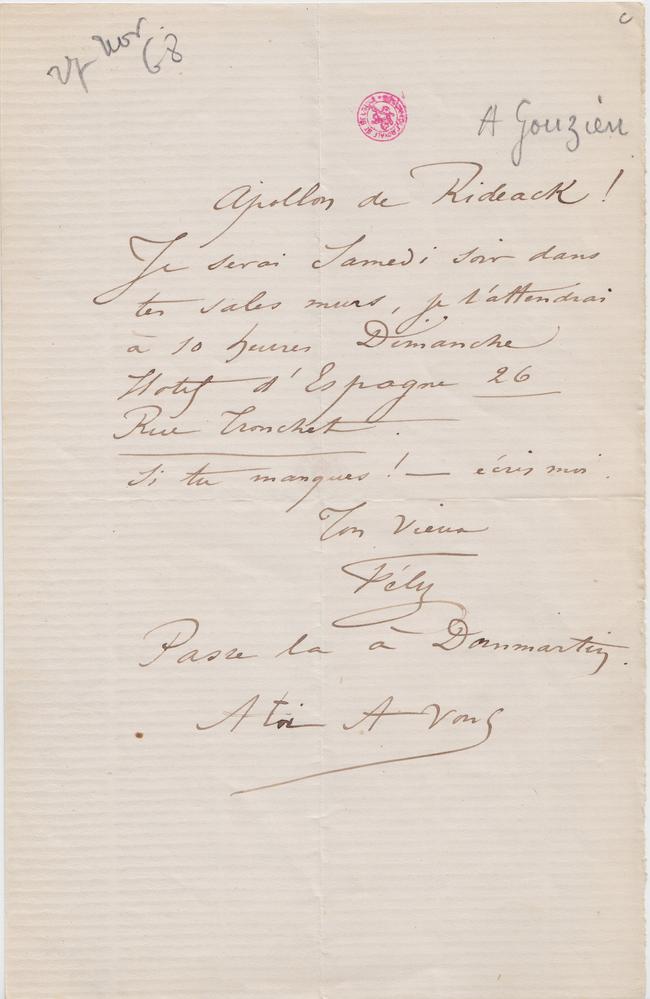 27 nov. 68
A Gouzien
Apollon de Rideack !
Je serai Samedi soir dans
tes sales murs, je t'attendrai
à 10 heures Dimanche
Hotel d'Espagne 26
Rue Tronchet.
Si tu manques ! — écris moi.
Ton vieux
Fély
Passe la à Dommartin.
A toi A Vous